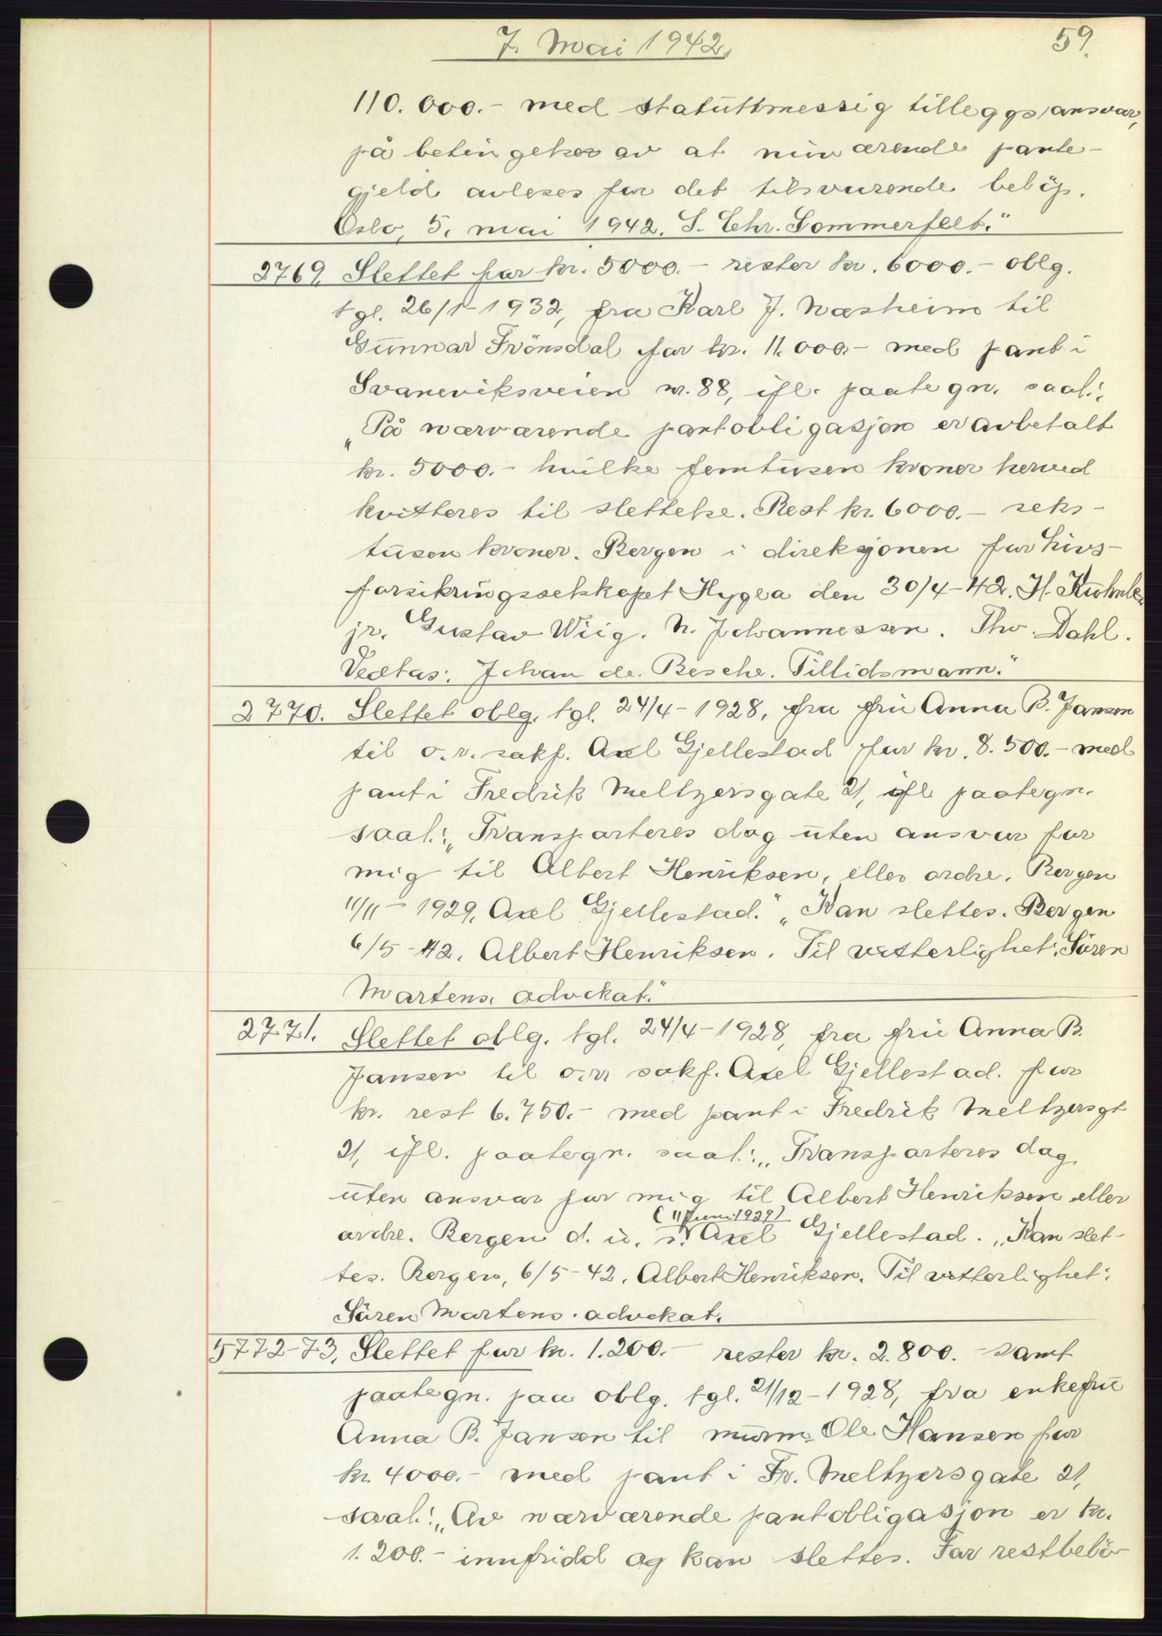 7. Mai 1942. 59.
110.000.- med statuttmessig tilleggs ansvar,
på betingelse av at nuværende pante-
gjeld avleses for det tilsvarende beløp.
Oslo, 5. mai 1942. S. Chr. Sommerfelt."
2769. Slettet for kr. 5000.- rester kr. 6000.- oblg.
tgl. 26/1-1932, fra Karl J. Næsheim til
Gunnar Frönsdal for kr. 11.000.- med pant i
Svaneviksveien nr. 88, ifl. paategn. saal.:
„På nærværende pantobligasjon er avbetalt
kr. 5000.- hvilke femtusen kroner herved
kvitteres til slettelse. Rest kr. 6000.- seks-
tusen kroner. Bergen i direksjonen for Livs-
forsikringsselskapet Hygea den 30/4-42. H. Kuhnle
jr. Gustav Wiig. N. Johannessen. Thv. Dahl.
Vedtas: Johan de Besche. Tillidsmann."
2770. Slettet oblg. tgl. 24/4-1928, fra fru Anna B. Jansen
til o.r. sakf. Axel Gjellestad for kr. 8.500.- med
pant i Fredrik Meltzersgate 21, ifl paategn.
saal.: „Transporteres dog uten ansvar for
mig til Albert Henriksen, eller ordre. Bergen
11/11-1929. Axel Gjellestad." „Kan slettes. Bergen
6/5-42. Albert Henriksen. Til vitterlighet: Sören
Martens, advokat."
2771. Slettet oblg. tgl. 24/4-1928, fra fru Anna B.
Jansen til o.rr sakf. Axel Gjellestad. for
kr. rest 6.750.- med pant i Fredrik Meltzersgt
21, ifl. paategn. saal.: „Transporteres dog
uten ansvar for mig til Albert Henriksen eller
(11 Juni 1929)
ordre. Bergen d. u. s. Axel Gjellestad. „Kan slet-
tes. Bergen, 6/5-42. Albert Henriksen. Til vitterlighet:
Sören Martens. advokat.
5772-73. Slettet for kr. 1.200.- rester kr. 2.800.- samt
paategn. paa oblg. tgl. 21/12-1928, fra enkefru
Anna B. Jansen til murm. Ole Hansen for
kr. 4000.- med pant i Fr. Meltzersgate 21,
saal.: „Av nærværende pantobligasjon er kr.
1.200.- innfridd og kan slettes. For restbelö